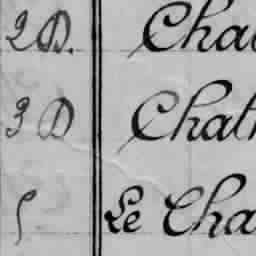 2 D. Cha
3 D Chat
5 Le Cha